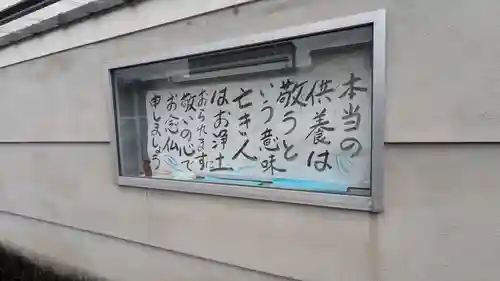 本当の
供養は
敬うと
いう意味
亡き人
はお浄土
におられます
敬いの心で
お念仏
申しましょう